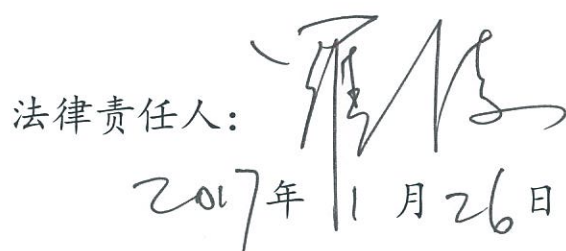 法律责任人：
2017年1月26日